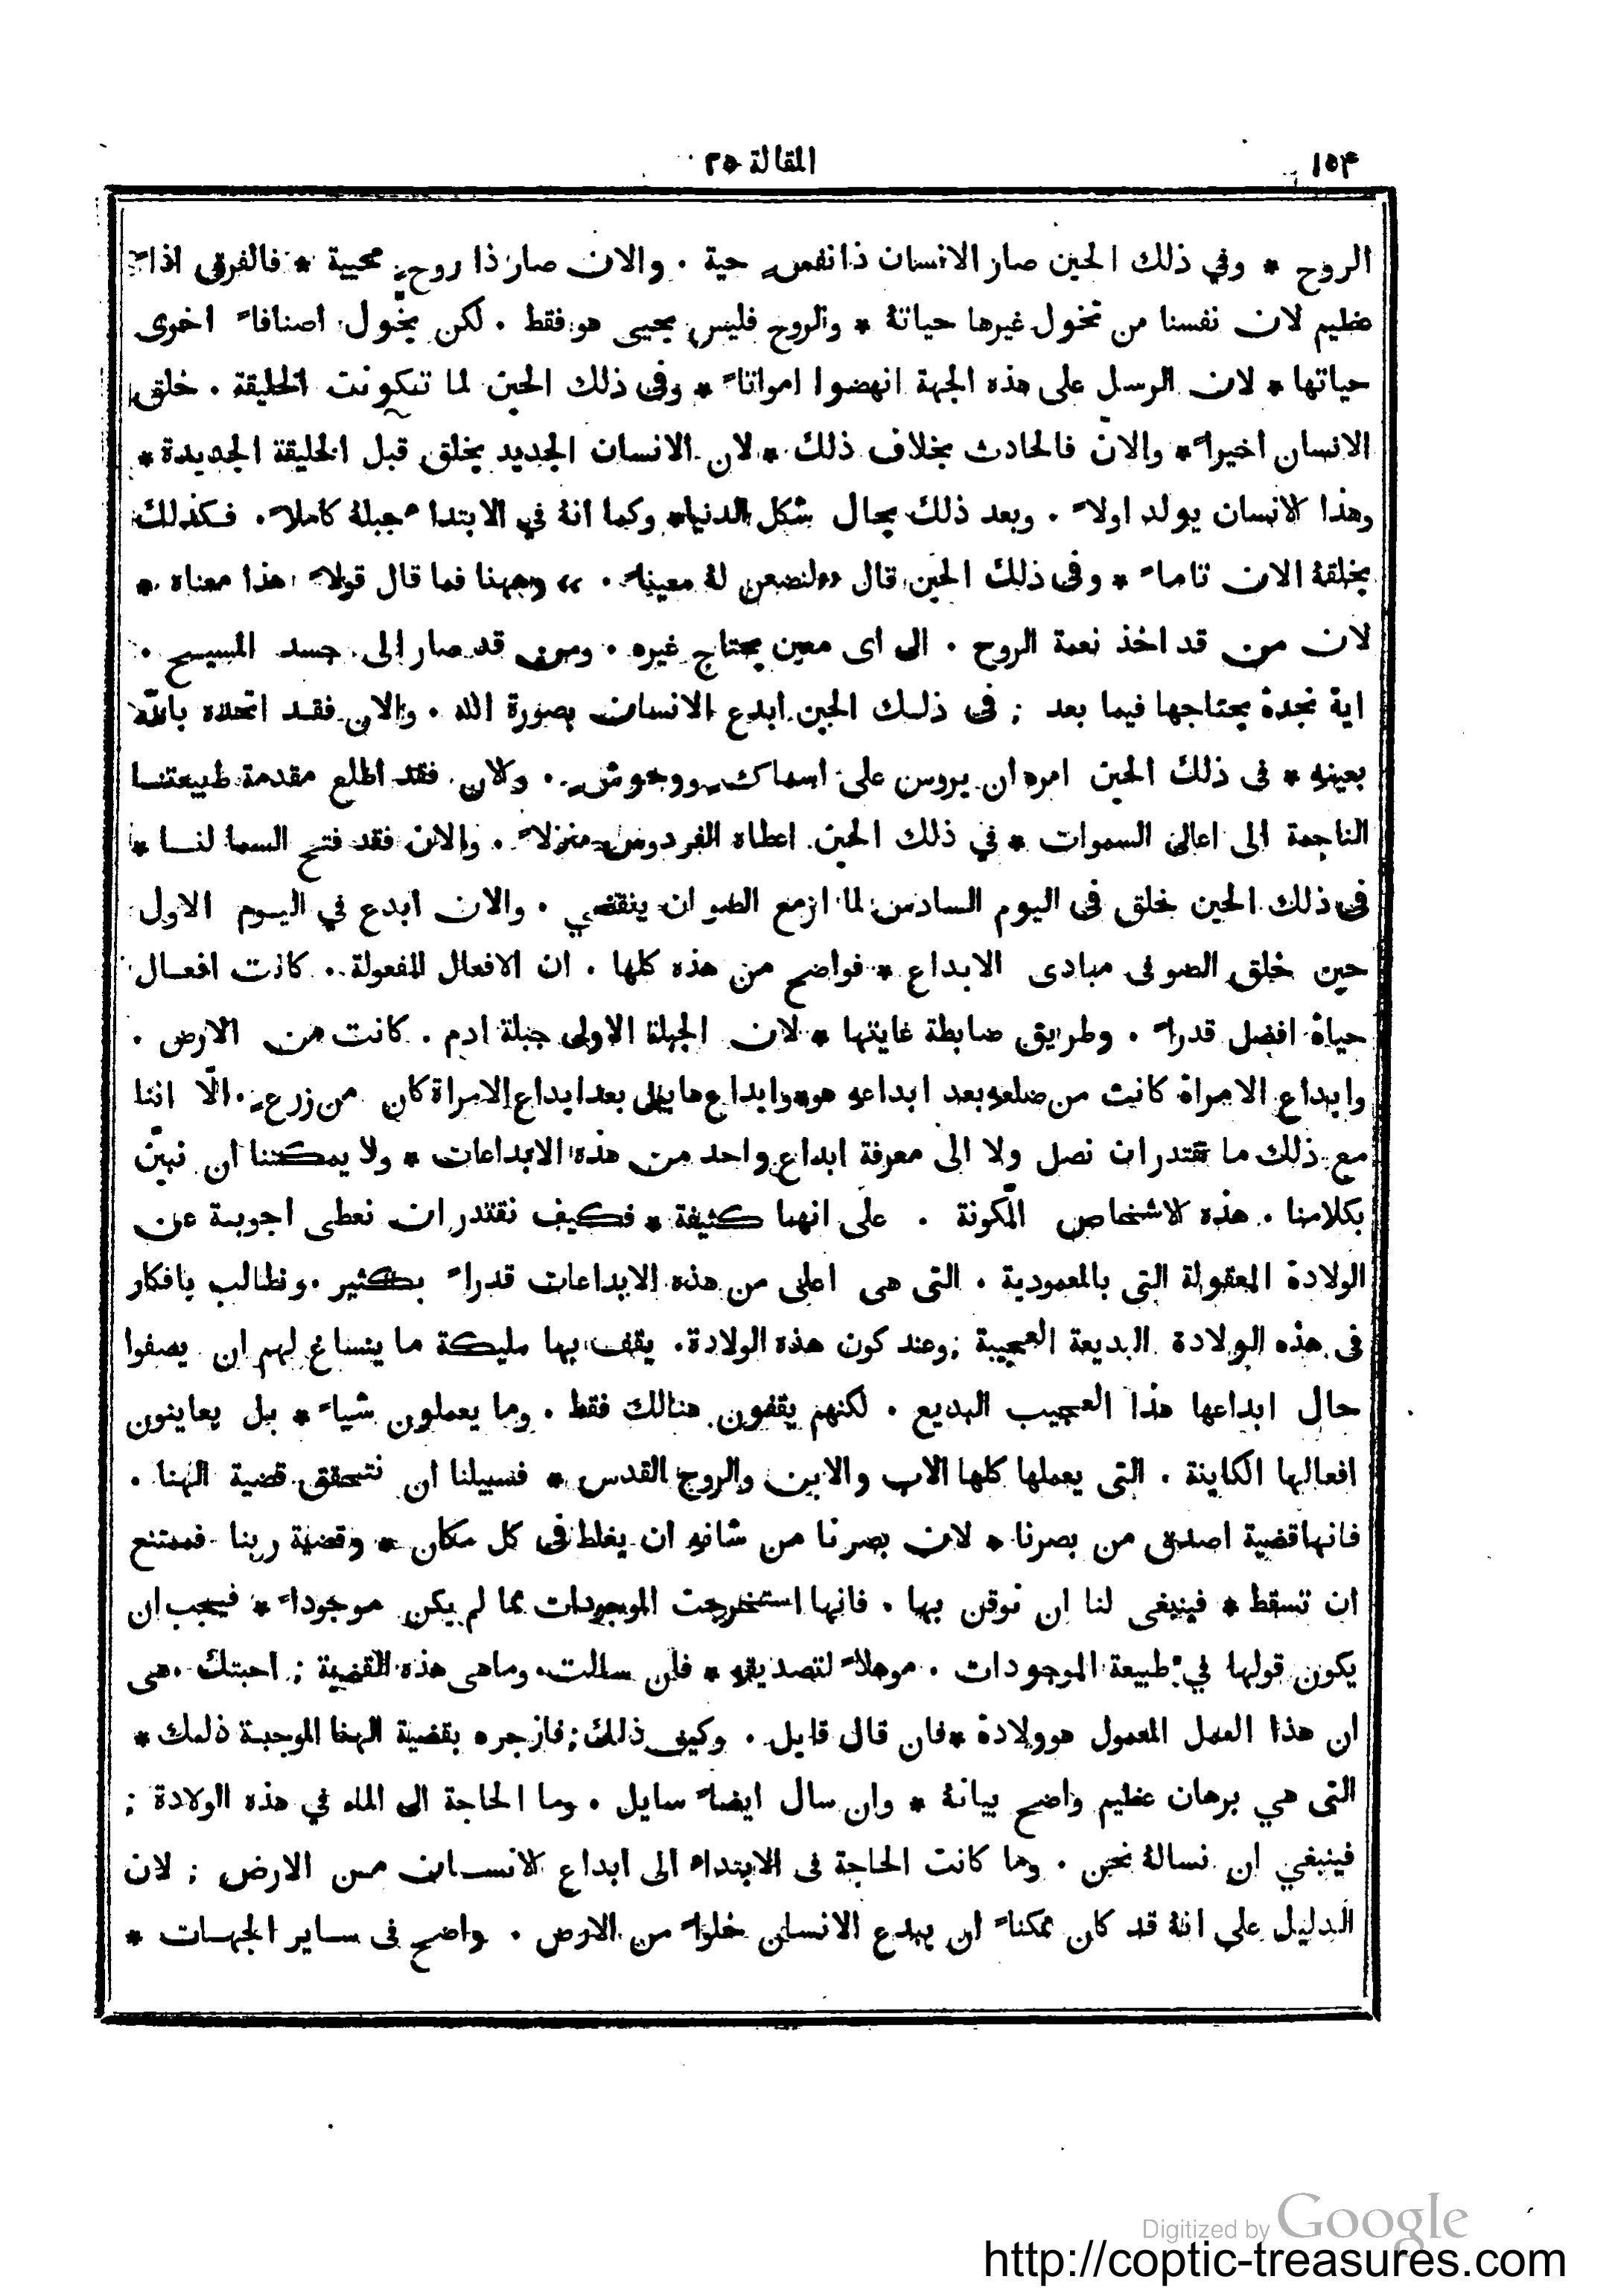 ١٥٤
المقالة ٢٥
الروح * وفي ذلك الحين صار الانسان ذا نفسٍ حية . والان صار ذا روحٍ محيية * فالفرق اذاً
عظيم لان نفسنا من تخول غيرها حياتهُ * والروح فليس يحيى هو فقط . لكن يخّول اصنافاً اخرى
حياتها * لان الرسل على هذه الجهة انهضوا امواتاً * وفى ذلك الحين لما تكونت الخليقة . خلق
الانسان اخيراً * والان فالحادث بخلاف ذلك * لان الانسان الجديد يخلق قبل الخليقة الجديدة *
وهذا الانسان يولد اولاً . وبعد ذلك يحال شكل الدنيا * وكما انهُ في الابتداء جبلهُ كاملاً . فكذلك
يخلقهُ الان تاماً * وفى ذلك الحين قال ”لنصنعن لهُ معيناً . “ وههنا فما قال قولاً هذا معناه *
لان من قد اخذ نعمة الروح . الى اى معين يحتاج غيره . ومن قد صار الى جسد المسيح .
اية نجدة يحتاجها فيما بعد ; فى ذلك الحين ابدع الانسان بصورة الله . والان فقد اتحده بالله
بعينهِ * فى ذلك الحين امره ان يروس على اسماكٍ ووحوشٍ . والان فقد اطلع مقدمة طبيعتنا
الناجمة الى اعالى السموات * في ذلك الحين اعطاه الفردوس منزلاً . والان فقد فتح السما لنا *
فى ذلك الحين خلق فى اليوم السادس لما ازمع الضو ان ينقضي . والان ابدع في اليوم الاول
حين خلق الضو فى مبادى الابداع * فواضح من هذه كلها . ان الافعال المفعولة . كانت افعال
حياة افضل قدراً . وطريق ضابطة غايتها * لان الجبلة الاولى جبلة ادم . كانت من الارض .
وابداع الامراة كانت من ضلعهِ بعد ابداعهِ هو * وابداع هابيل بعد ابداع الامراة كان من زرعٍ . الّا اننا
مع ذلك ما نقتدر ان نصل ولا الى معرفة ابداع واحد من هذه الابداعات * ولا يمكننا ان نبيّن
بكلامنا . هذه الاشخاص المكّونة . على انها كثيفة * فكيف نقتدر ان نعطى اجوبة عن
الولادة المعقولة التى بالمعمودية . التى هى اعلى من هذه الابداعات قدراً بكثير . ونطالب بافكار
فى هذه الولادة البديعة العجيبة ; وعند كون هذه الولادة . يقف بها مليكة ما ينساغ لهم ان يصفوا
حال ابداعها هذا العجيب البديع . لكنهم يقفون هنالك فقط . وما يعملون شياً * بل يعاينون
افعالها الكاينة . التى يعملها كلها الاب والابن والروح القدس * فسبيلنا ان نتحقق قضية الهنا .
فانها قضية اصدق من بصرنا * لان بصرنا من شانهِ ان يغلط فى كل مكان * وقضية ربنا فممتنع
ان تسقط * فينبغى لنا ان نوقن بها . فانها استخرجت الموجودات مما لم يكن موجوداً * فيجب ان
يكون قولها في طبيعة الموجودات . موهلاً لتصديقهِ * فان سالت . وماهى هذه القضية ; اجبتك . هى
ان هذا العمل المعمول هو ولادة * فان قال قايل . وكيف ذلك ; فازجره بقضية الهنا الموجبة ذلك *
التى هي برهان عظيم واضح بيانهُ * وان سال ايضاً سايل . وما الحاجة الى الماء في هذه الولادة ;
فينبغي ان نسالهُ نحن . وما كانت الحاجة فى الابتداء الى ابداع الانسان من الارض ; لان
الدليل على انهُ قد كان ممكناً ان يبدع الانسان خلواً من الارض . واضح فى ساير الجهات *
Digitized by Google
http://coptic-treasures.com